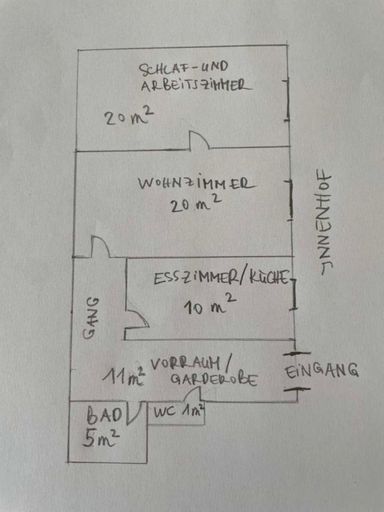 SCHLAF-UND
ARBEITSZIMMER
20 m²
WOHNZIMMER
20 m²
INNENHOF
ESSZIMMER/KÜCHE
10 m²
GANG
VORRAUM/
GARDEROBE
11m²
EINGANG
BAD
5m²
WC 1m²